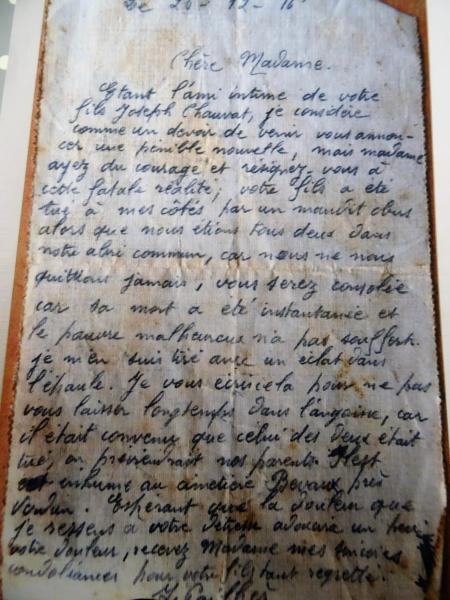 Le 20-12-16
Chère Madame.
Etant l'ami intime de votre
fils Joseph Chauvat, je considère
comme un devoir de venir vous annon-
cer une pénible nouvelle, mais madame
ayez du courage et résignez-vous à
cette fatale réalité; votre fils a été
tué à mes côtés par un maudit obus
alors que nous étions tous deux dans
notre abri commun, car nous ne nous
quittions jamais, vous serez consolée
car sa mort a été instantanée et
le pauvre malheureux n'a pas souffert.
je m'en suis tiré avec un éclat dans
l'épaule. Je vous écris cela pour ne pas
vous laisser longtemps dans l'angoisse, car
il était convenu que celui des deux était
tué, on préviendrait nos parents. Il est
inhumé au cimetière Bevaux près
Verdun. Espérant que la douleur que
je ressens à votre détresse adoucira un peu
votre douleur, recevez Madame mes sincères
condoléances pour votre fils tant regretté.